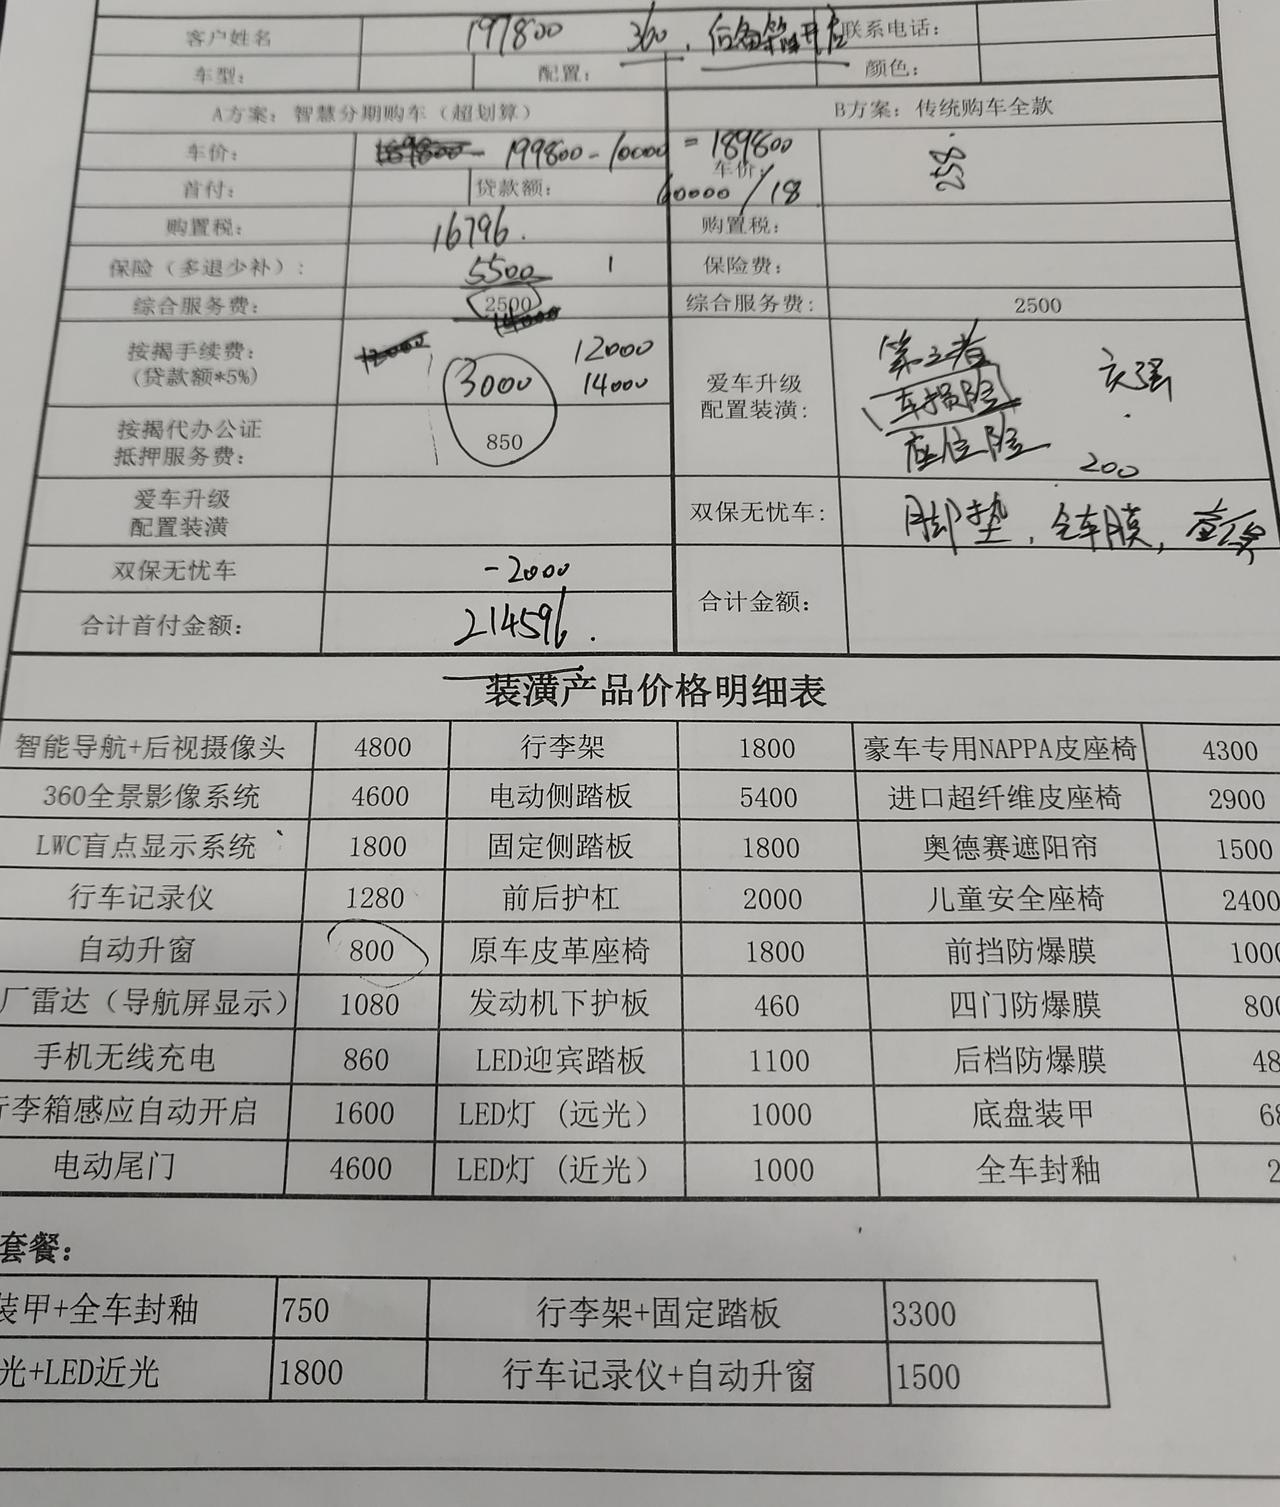 客户姓名 197800 360、后备箱开启 联系电话：
车型： 配置： 颜色：
A方案：智慧分期购车（超划算） B方案：传统购车全款
车价： 199800-10000=189800 车价： 258.
首付： 贷款额： 60000/18
购置税： 16796. 购置税：
保险（多退少补）： 5500 保险费：
综合服务费： 2500 14000 综合服务费： 2500
按揭手续费：
(贷款额*5%) 12000 3000 12000
14000
爱车升级
配置装潢： 第三者 交强
车损险
座位险
200
按揭代办公证
抵押服务费： 850
爱车升级
配置装潢 双保无忧车： 脚垫，全车膜，
双保无忧车 -2000
合计首付金额： 214596. 合计金额：
装潢产品价格明细表
智能导航+后视摄像头 4800 行李架 1800 豪车专用NAPPA皮座椅 4300
360全景影像系统 4600 电动侧踏板 5400 进口超纤维皮座椅 2900
LWC盲点显示系统 1800 固定侧踏板 1800 奥德赛遮阳帘 1500
行车记录仪 1280 前后护杠 2000 儿童安全座椅 2400
自动升窗 800 原车皮革座椅 1800 前挡防爆膜 1000
厂雷达（导航屏显示） 1080 发动机下护板 460 四门防爆膜 800
手机无线充电 860 LED迎宾踏板 1100 后档防爆膜 48
行李箱感应自动开启 1600 LED灯（远光） 1000 底盘装甲 68
电动尾门 4600 LED灯（近光） 1000 全车封釉 2
套餐：
装甲+全车封釉 750 行李架+固定踏板 3300
光+LED近光 1800 行车记录仪+自动升窗 1500